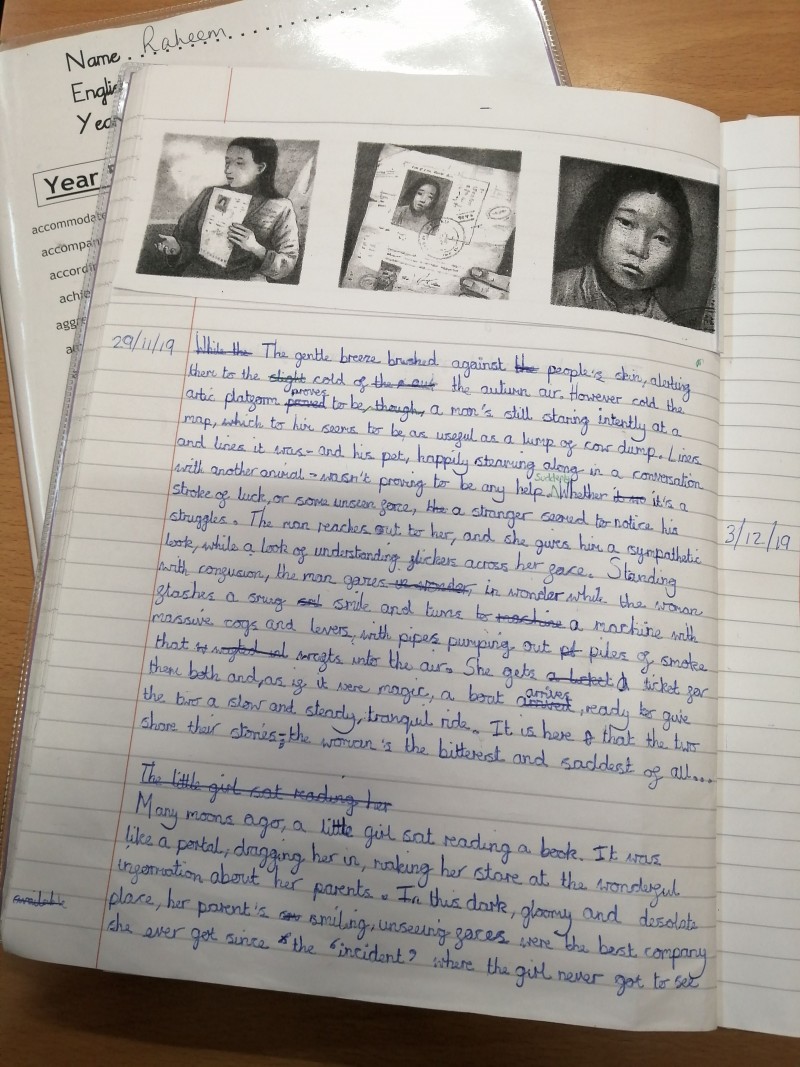 Name Raheem
Englis
Year
Year
accommodate
accompan
accordin
achie
aggr
29/11/19
While the The gentle breeze brushed against the people's skin, alerting
them to the slight cold of the autumn air. However cold the
artic platform proved proves to be, though, a man's still staring intently at a
map, which to him seems to be as useful as a lump of cow dump. Lines
and lines it was - and his pet, happily steaming along in a conversation
with another animal - wasn't proving to be any help. Suddenly Whether it's a
stroke of luck, or some unseen force, the a stranger seemed to notice his
struggles. The man reaches out to her, and she gives him a sympathetic
look, while a look of understanding flickers across her face. Standing
with confusion, the man gazes in wonder, in wonder while the woman
flashes a smug smile and turns to machine a machine with
massive cogs and levers, with pipes pumping out piles of smoke
that wafts into the air. She gets a ticket A ticket for
them both and, as if it were magic, a boat arrived arrives, ready to give
the two a slow and steady, tranquil ride. It is here that the two
share their stories; the woman's the bitterest and saddest of all...
The little girl sat reading her
Many moons ago, a little girl sat reading a book. It was
like a portal, dragging her in, making her stare at the wonderful
information about her parents. In this dark, gloomy and desolate
available
place, her parent's smiling, unseeing faces were the best company
she ever got since the 'incident' where the girl never got to see
3/12/19